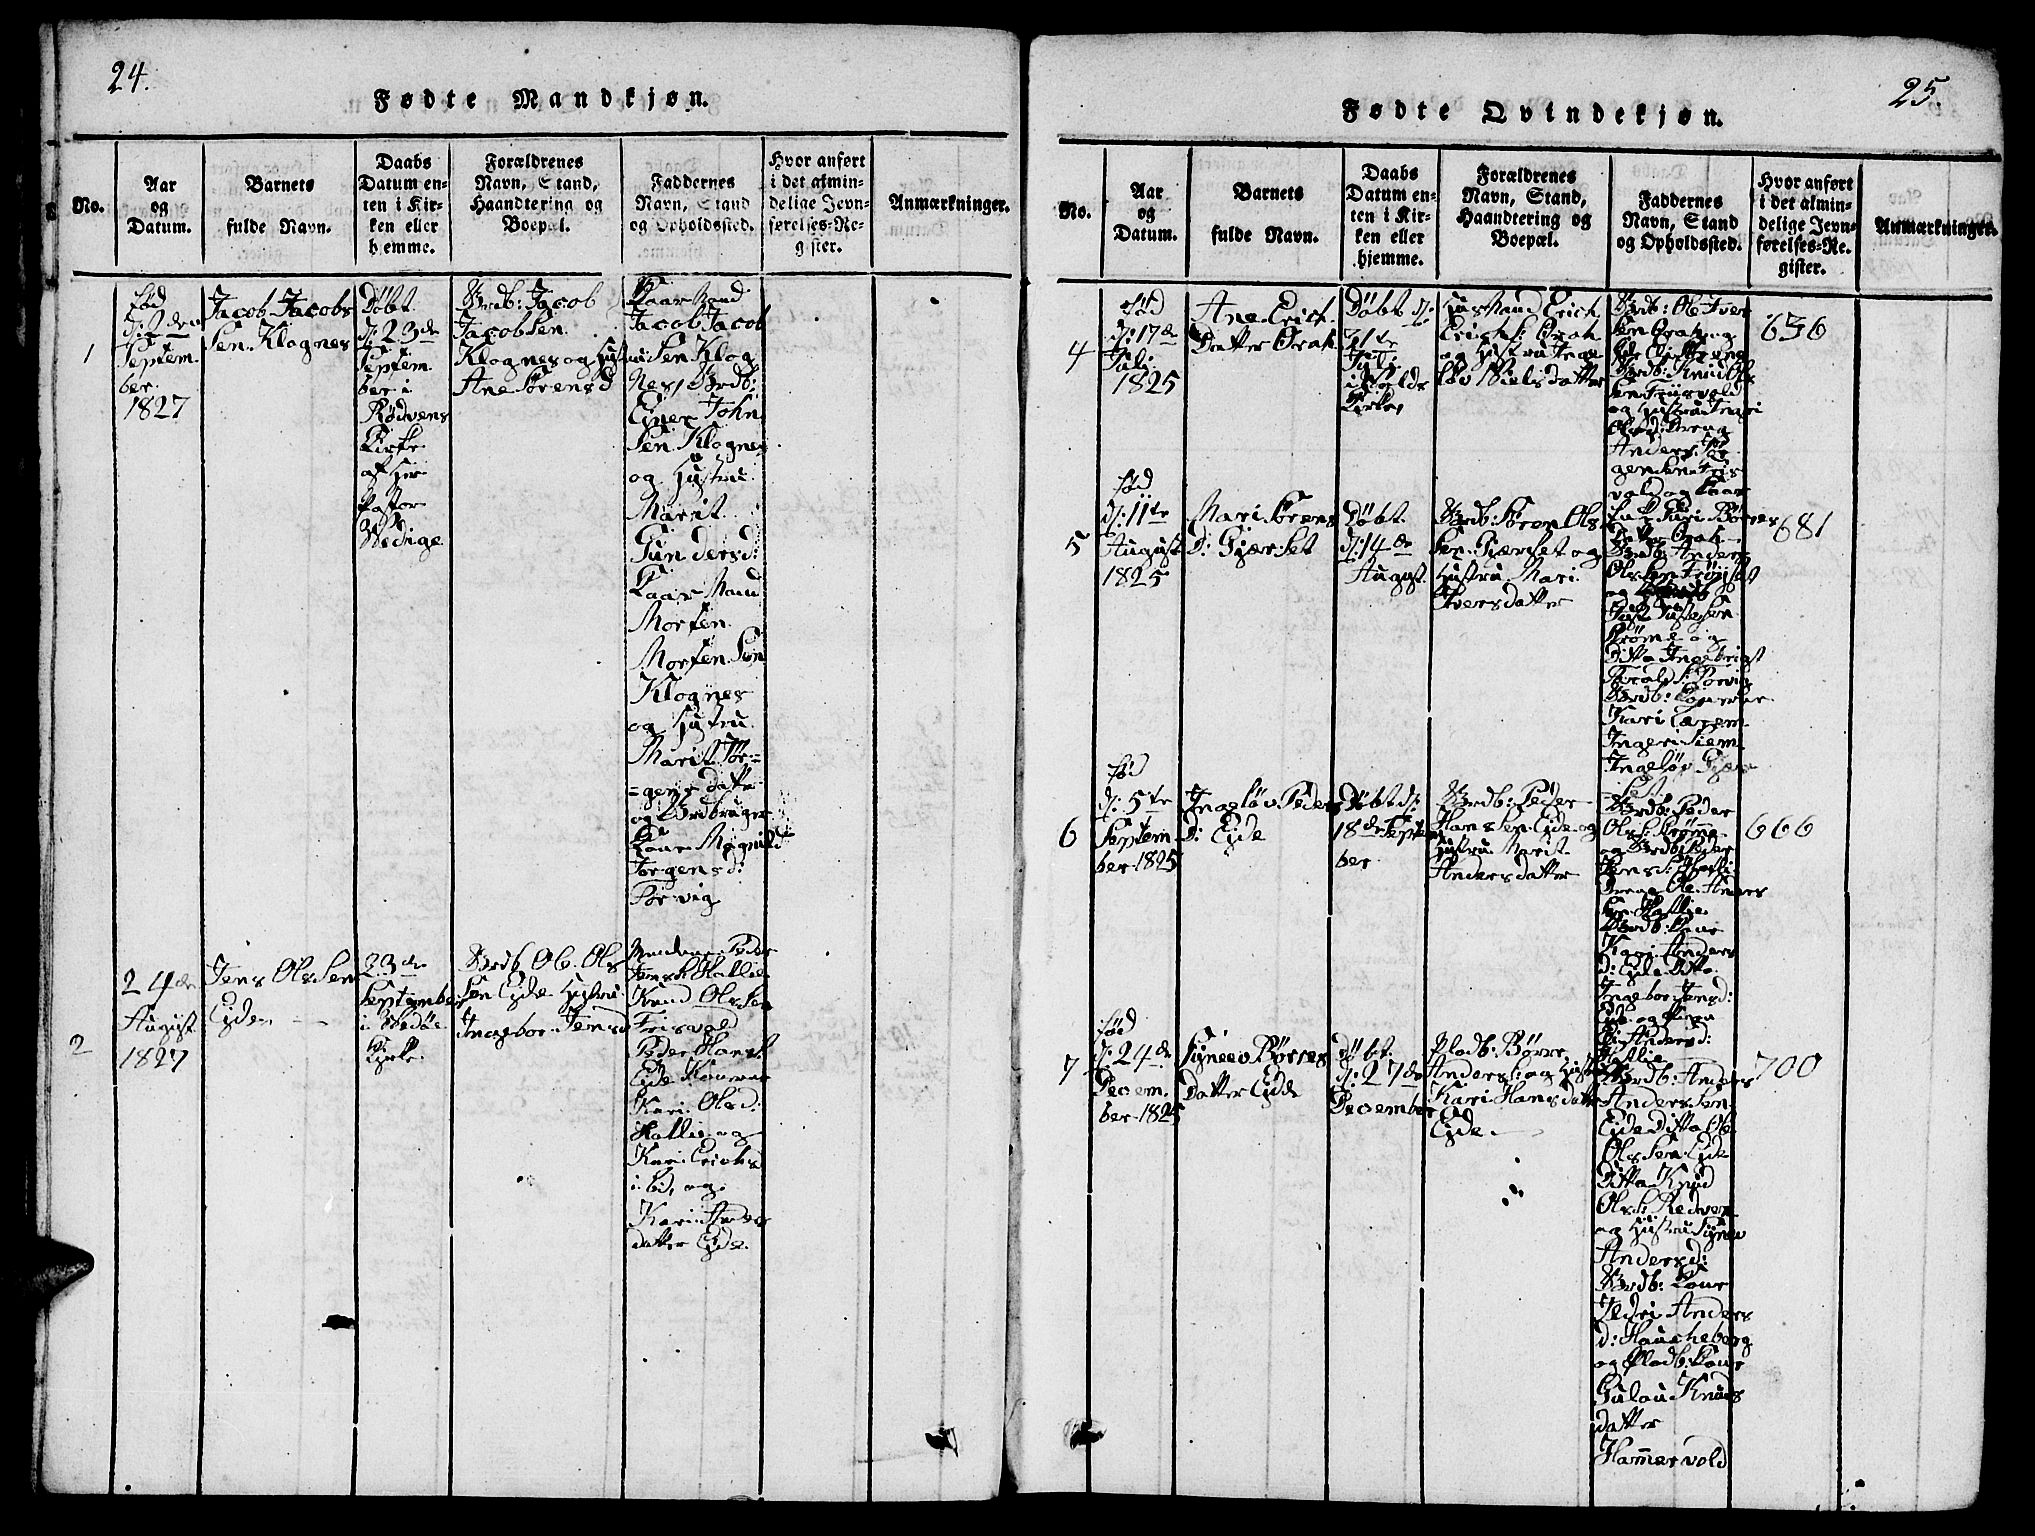 24.
Fødte Mandkjøn.
No.
Aar
og
Datum.
Barnets
fulde Navn.
Daabs
Datum en-
ten i Kir-
ken eller
hjemme.
Forældrenes
Navn, Stand,
Haandtering og
Boepæl.
Faddernes
Navn, Stand
og Opholdssted.
Hvor anført
i det almin-
delige Jevn-
førelses-Re-
gister.
Anmærkninger.
1
fød
d: 2den
Septem
ber
1827
Jacob Jacobs
Sen. Klognes
Døbt
d: 23de
Septem
ber i
Rødvens
Kirke
af Her
Pastor
Wedige
Brdb: Jacob
Jacobsen
Klognes og Hustru:
Ane Sørensd
Jacob Jacob
Sen Klog
Nes, Brdb:
Einer John
Sen Klognes
og Hustru
Marit
Gundersd:
Kaar Mand
Morten
Morten Sen
Klognes
og Hustru
Marit Jør=
=gens datter
og Brdbruger
Kone Magnild
Jørgensd:
Torvig
2
24de
August
1827
Jens Ols Sen
Eide.
23de
September
i Wedöe
Kirke.
Brdb Ole Ols
Sen Eide Hustru
Ingebor Jensd
Peder
Jens S: Hatlie
Knud Ols Sen
Frisvold
Peder Hans S:
Eide Konerne
Kari Olsd:
Hatlie og
Kari Erichs
i bd, og
Kari Anders
datter Eide.
25.
Fødte Qvindekjøn.
No.
Aar
og
Datum.
Barnets
fulde Navn.
Daabs
Datum en-
ten i Kir-
ken eller
hjemme.
Forældrenes
Navn, Stand,
Haandtering og
Boepæl.
Faddernes
Navn, Stand
og Opholdssted.
Hvor anført
i det almin-
delige Jevn-
førelses-Re-
gister.
Anmærkninger.
4
fød
d: 17de
Juli
1825
Ane Erich
Datter Brak
Døbt d:
31te
Juli
i Holds
Kirke,
Husmand Erich
Erich S: Brak
og Hustru Inge
løv Nielsdatter
Brdb: Ole Iver
Sen Brak og
Brdb: Knud Ols
Sen Friisvold
og Hustru Ingri
Olsd: Dreng
Anders Jør
gensen Fris
vold og Kaar
Datter Brak
636
5
fød
d: 11te
August
1825
Mari Sørens
D: Gjærset
Døbt
d: 14de
August
Brdb: Søren Ols
Sen Gjærset og
Hustru Mari
Iversdatter
Brdb: Anders
Ols Sen
og
Strøme og
Ditta Ingebrigt
Torvig
Brdb: Konerne
Kari
Ingeri
Ingeløv Gjær
Set
681
6
fød
d: 5te
Septem
ber 1825
Ingeløv Peders
D: Eide
Døbt d:
18de Septem
ber
Brdb: Peder
Hans Sen Eide og
Hustru Marit
Andersdatter
Brdb: Peder
Ols S: Strøme
og Brdb Peder
Jens S: Hatli
Dreng Ole Anders
Sen Hatlie
Brdb: Kone
Kari Anders
d: Eide Ditto
Ingebor Jensd:
Eide og Pigen
Andersd:
Hatlie
666
7
fød
d: 24de
Decem
ber 1825
Synev Børres
datter Eide
Døbt
d: 27de
December
Pladb: Børre
Anders S: og Hustru
Kari Hansdatter
Eide.
Brdb: Anders
Anders Sen
Eide Ditta Ole
Ols Sen Eide
Ditta Knud
Ols S: Redven
og Hustru Synev
Andersd:
Brdb: Kone
Anders
d: Haucheberg
og Pladb: Kone
Gulau Knuds
datter
Hamervold
700